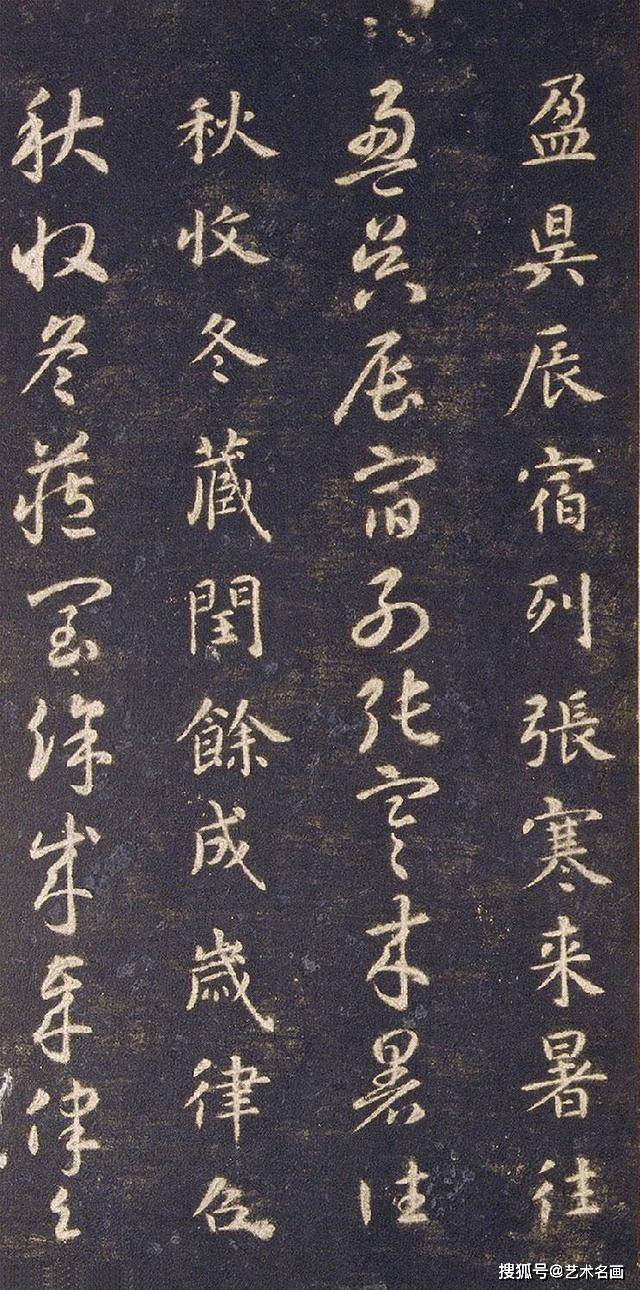 盈昃辰宿列張寒来暑往
盈昃辰宿列張寒来暑往
秋收冬藏閏餘成歲律召
秋收冬藏閏餘成歲律召
搜狐号@艺术名画